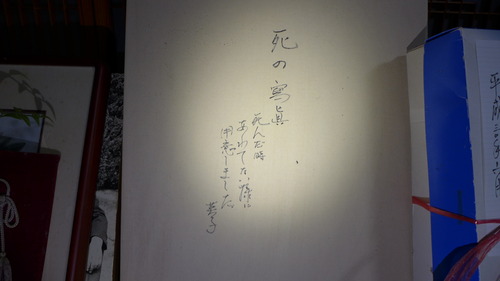 死の寫眞
死んだ時
あわてない様に
用意しました